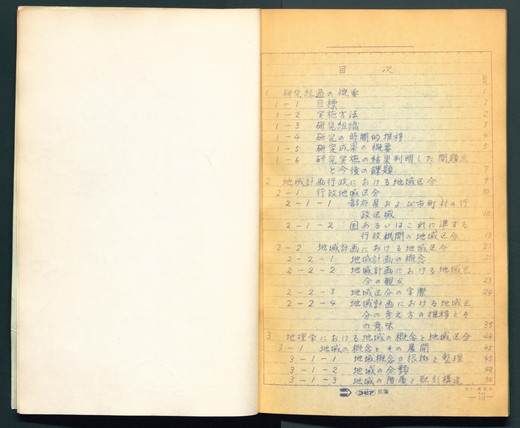 目 次
頁
1. 研究計画の概要 1
1-1 目標 1
1-2 実施方法 2
1-3 研究組織 3
1-4 研究の時間的推移 4
1-5 研究成果の概要 5
1-6 研究実施の結果判明した問題点
と今後の課題 7
2. 地域計画行政における地域区分 9
2-1 行政地域区分
2-1-1 都府県および市町村の行
政区域 10
2-1-2 国あるいはこれに準ずる
行政機関の地域区分
2-2 地域計画における地域区分 21
2-2-1 地域計画の概念 21
2-2-2 地域計画における地域区
分の観点 23
2-2-3 地域区分の実際 26
2-2-4 地域計画における地域区
分の考え方の推移とそ
の意味 35
3. 地理学における地域の概念と地域区分 44
3-1 地域の概念とその展開
3-1-1 地域概念の根拠と整理
3-1-2 地域の
3-1-3 地域の階層と